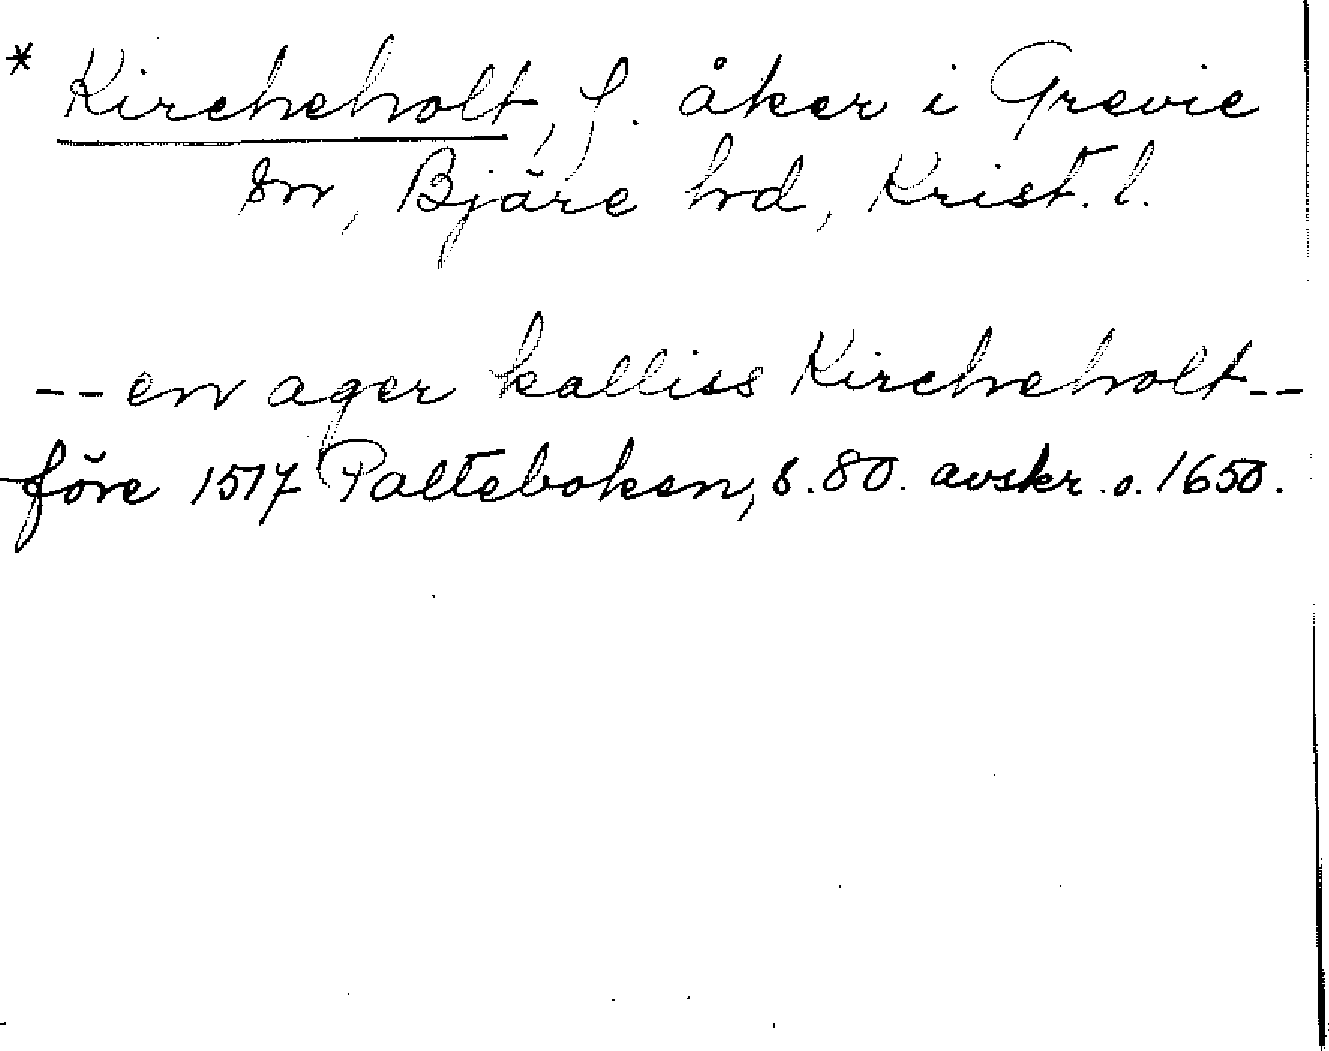 * Kircheholt, f. åker i Grevie
sn, Bjäre hd, Krist. l.
-- en ager kalliss Kircheholt --
före 1517 Palteboken, s. 80. avskr. o. 1650.